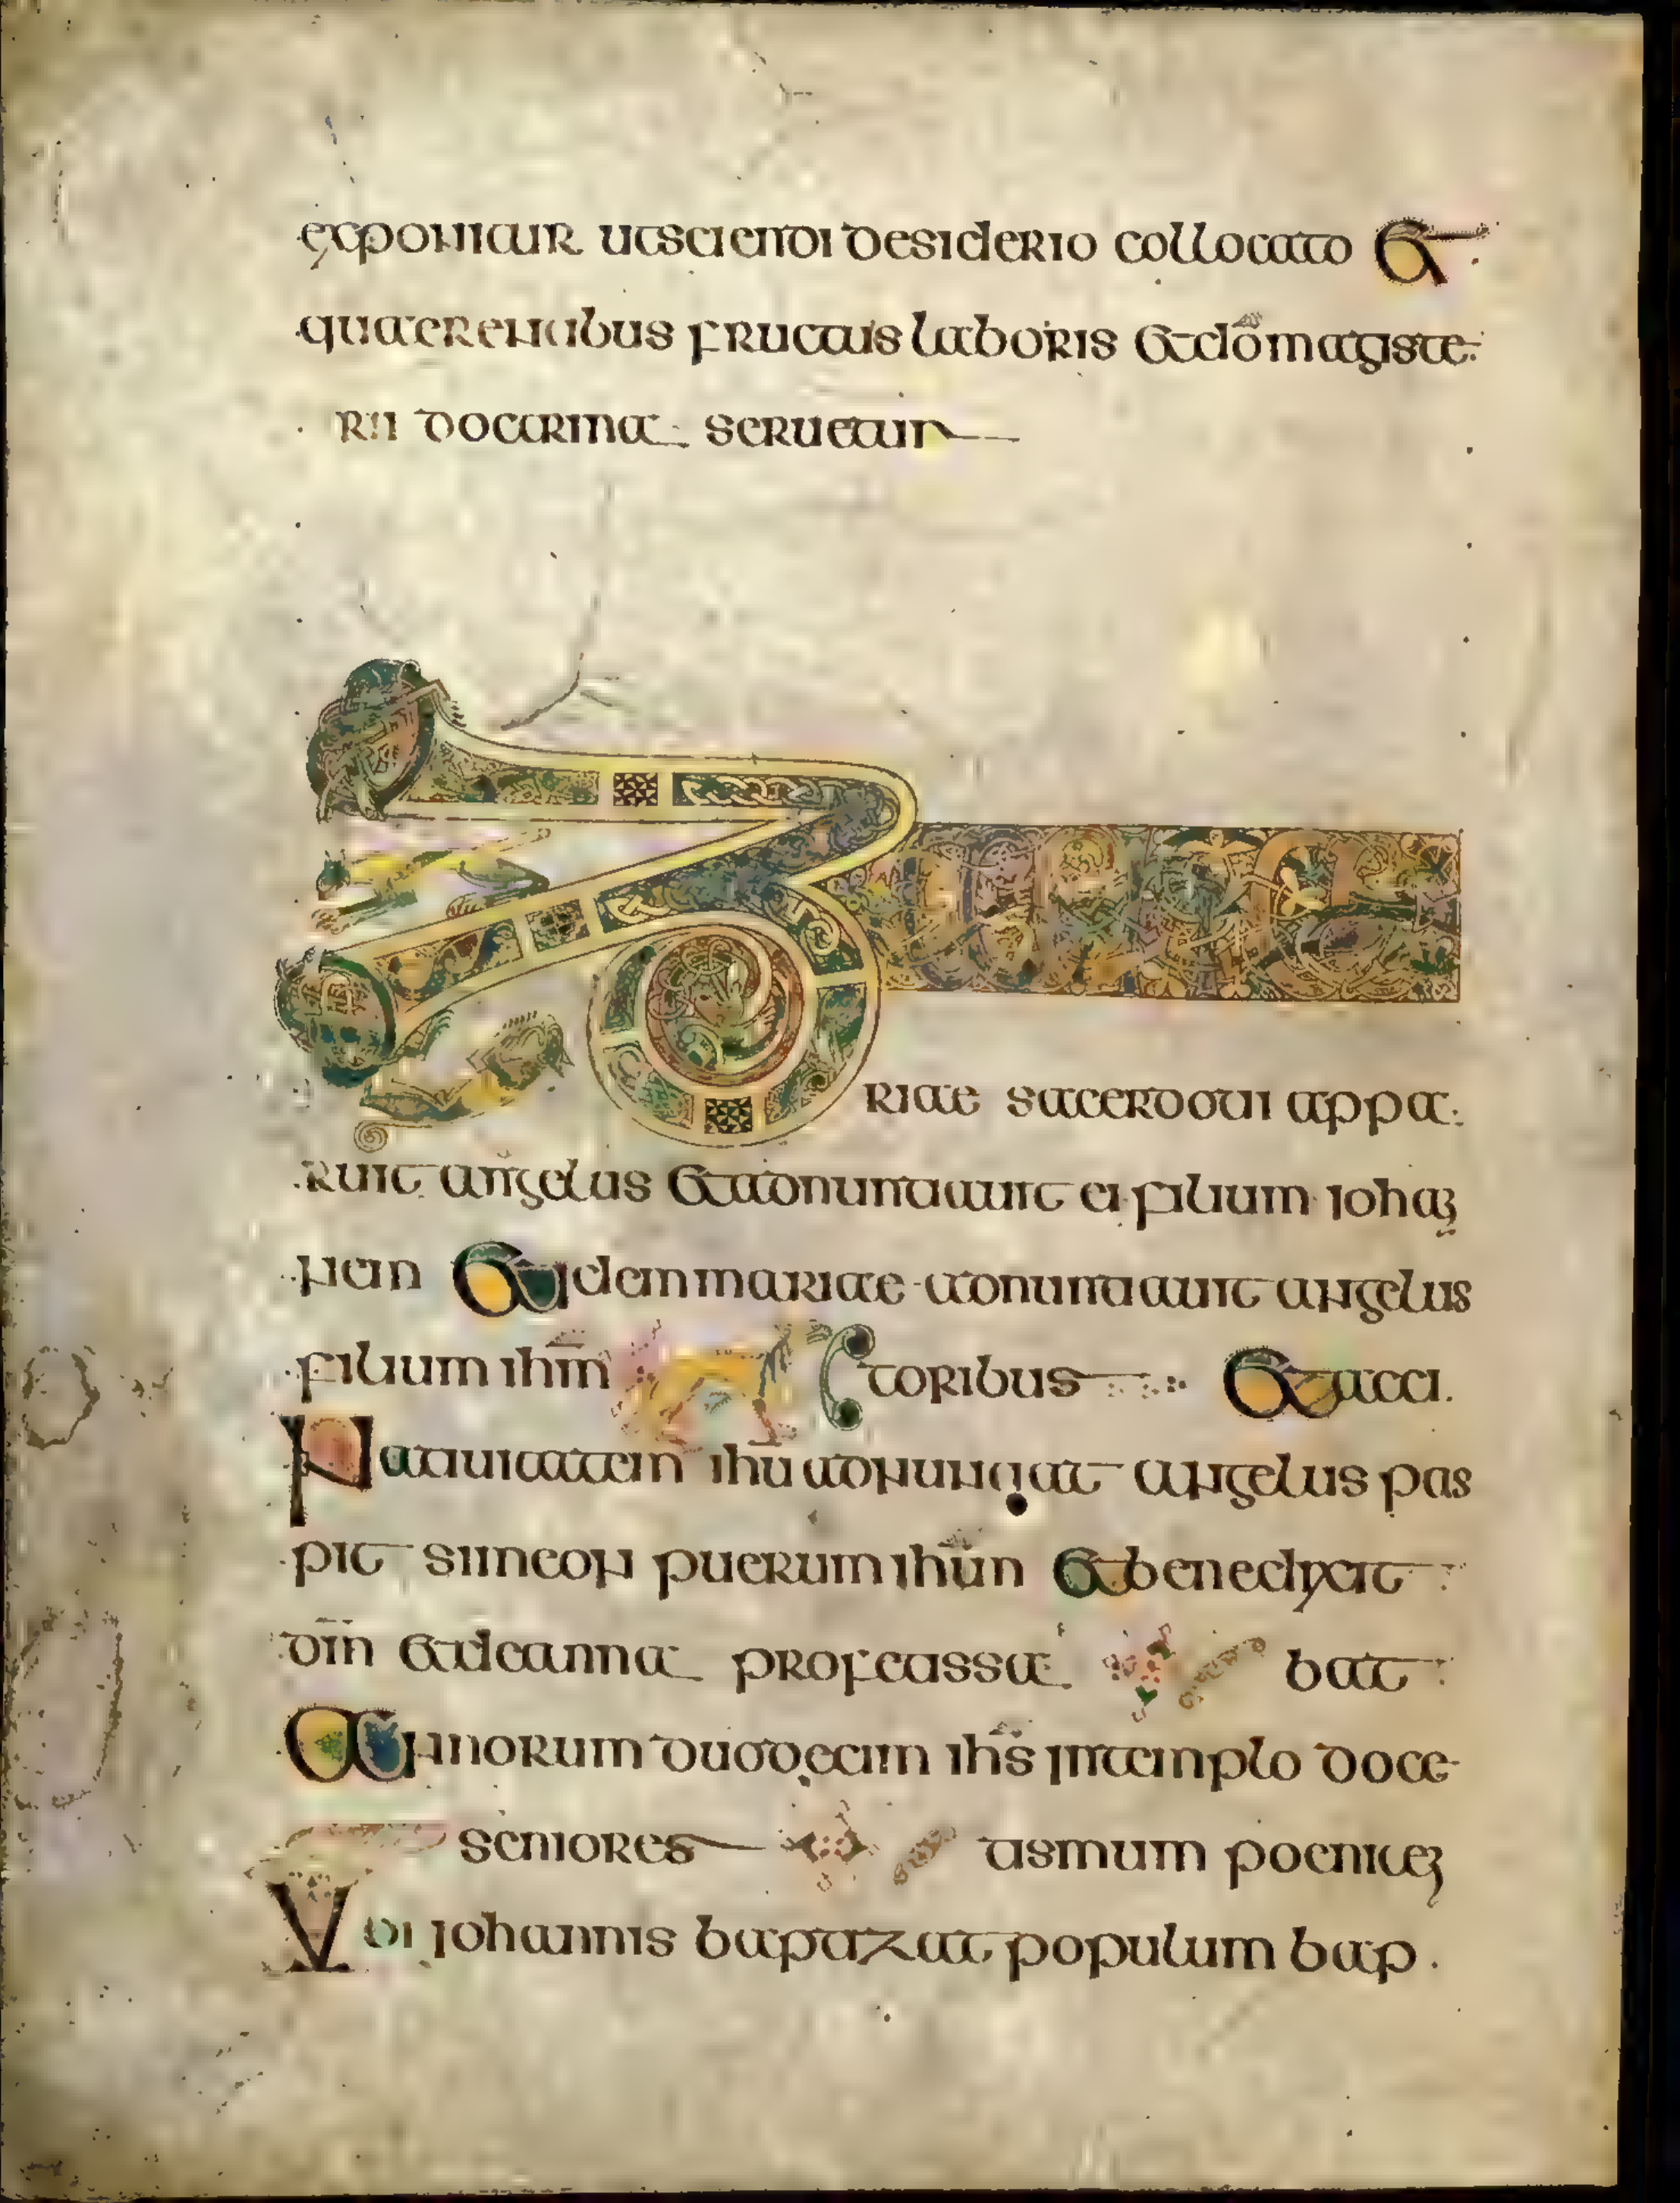 exponitur ut scienti desiderio collocato et
quaerentibus fructus laboris et dō magiste
rii doctrina seruetur
Zacha
riae sacerdoti appa
ruit angelus et adnuntiauit ei filium ioha
nen et eidem mariae adnuntiauit angelus
filium ihm toribus et acci
Natiuitatem ihu adnuntiat angelus pas
pit simeon puerum ihūn et benedixit
dm̄ et de anna profetissa bat
annorum duodecim ihs̄ in templo doce
seniores tismum poenite
Vbi iohannis baptizat populum bap